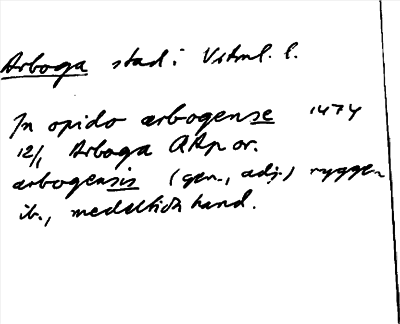 Arboga stad i Vstml. l.
In opido arbogense 1474
12/1 Arboga RAp or.
arbogensis (gen., adj.) ryggen
ib., medeltida hand.